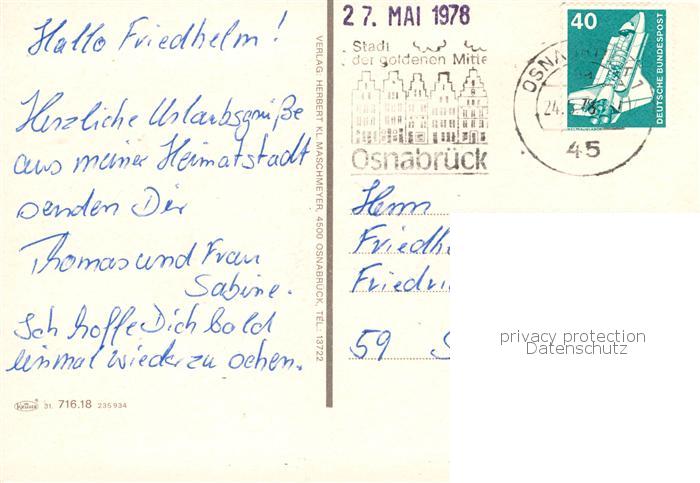 Hallo Friedhelm!
Herzliche Urlaubsgrüße
aus meiner Heimatstadt
senden Dir
Thomas und Frau
Sabine.
Ich hoffe Dich bald
einmal wieder zu sehen.
Krüger 31. 716.18 235934
VERLAG: HERBERT KL. MASCHMEYER, 4500 OSNABRÜCK, TEL.: 13722
27. MAI 1978
Stadt
der goldenen Mitte
Osnabrück
OSNABRÜCK 1
24.
45
40
DEUTSCHE BUNDESPOST
Herrn
Friedh
Friedri
59 S
privacy protection
Datenschutz